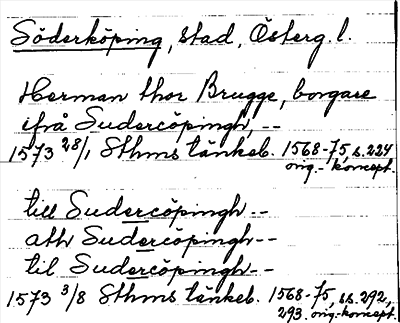 Söderköping, stad, Österg. l.
Herman thor Brugge, borgare
ifrå Sudercöpingh, --
1573 28/1 Sthms tänkeb. 1568-75, s. 224
orig.-koncept.
till Sudercöpingh --
ath Sudercöpingh --
til Sudercöpingh --
1573 3/8 Sthms tänkeb. 1568-75, ss. 292,
293. orig.-koncept.